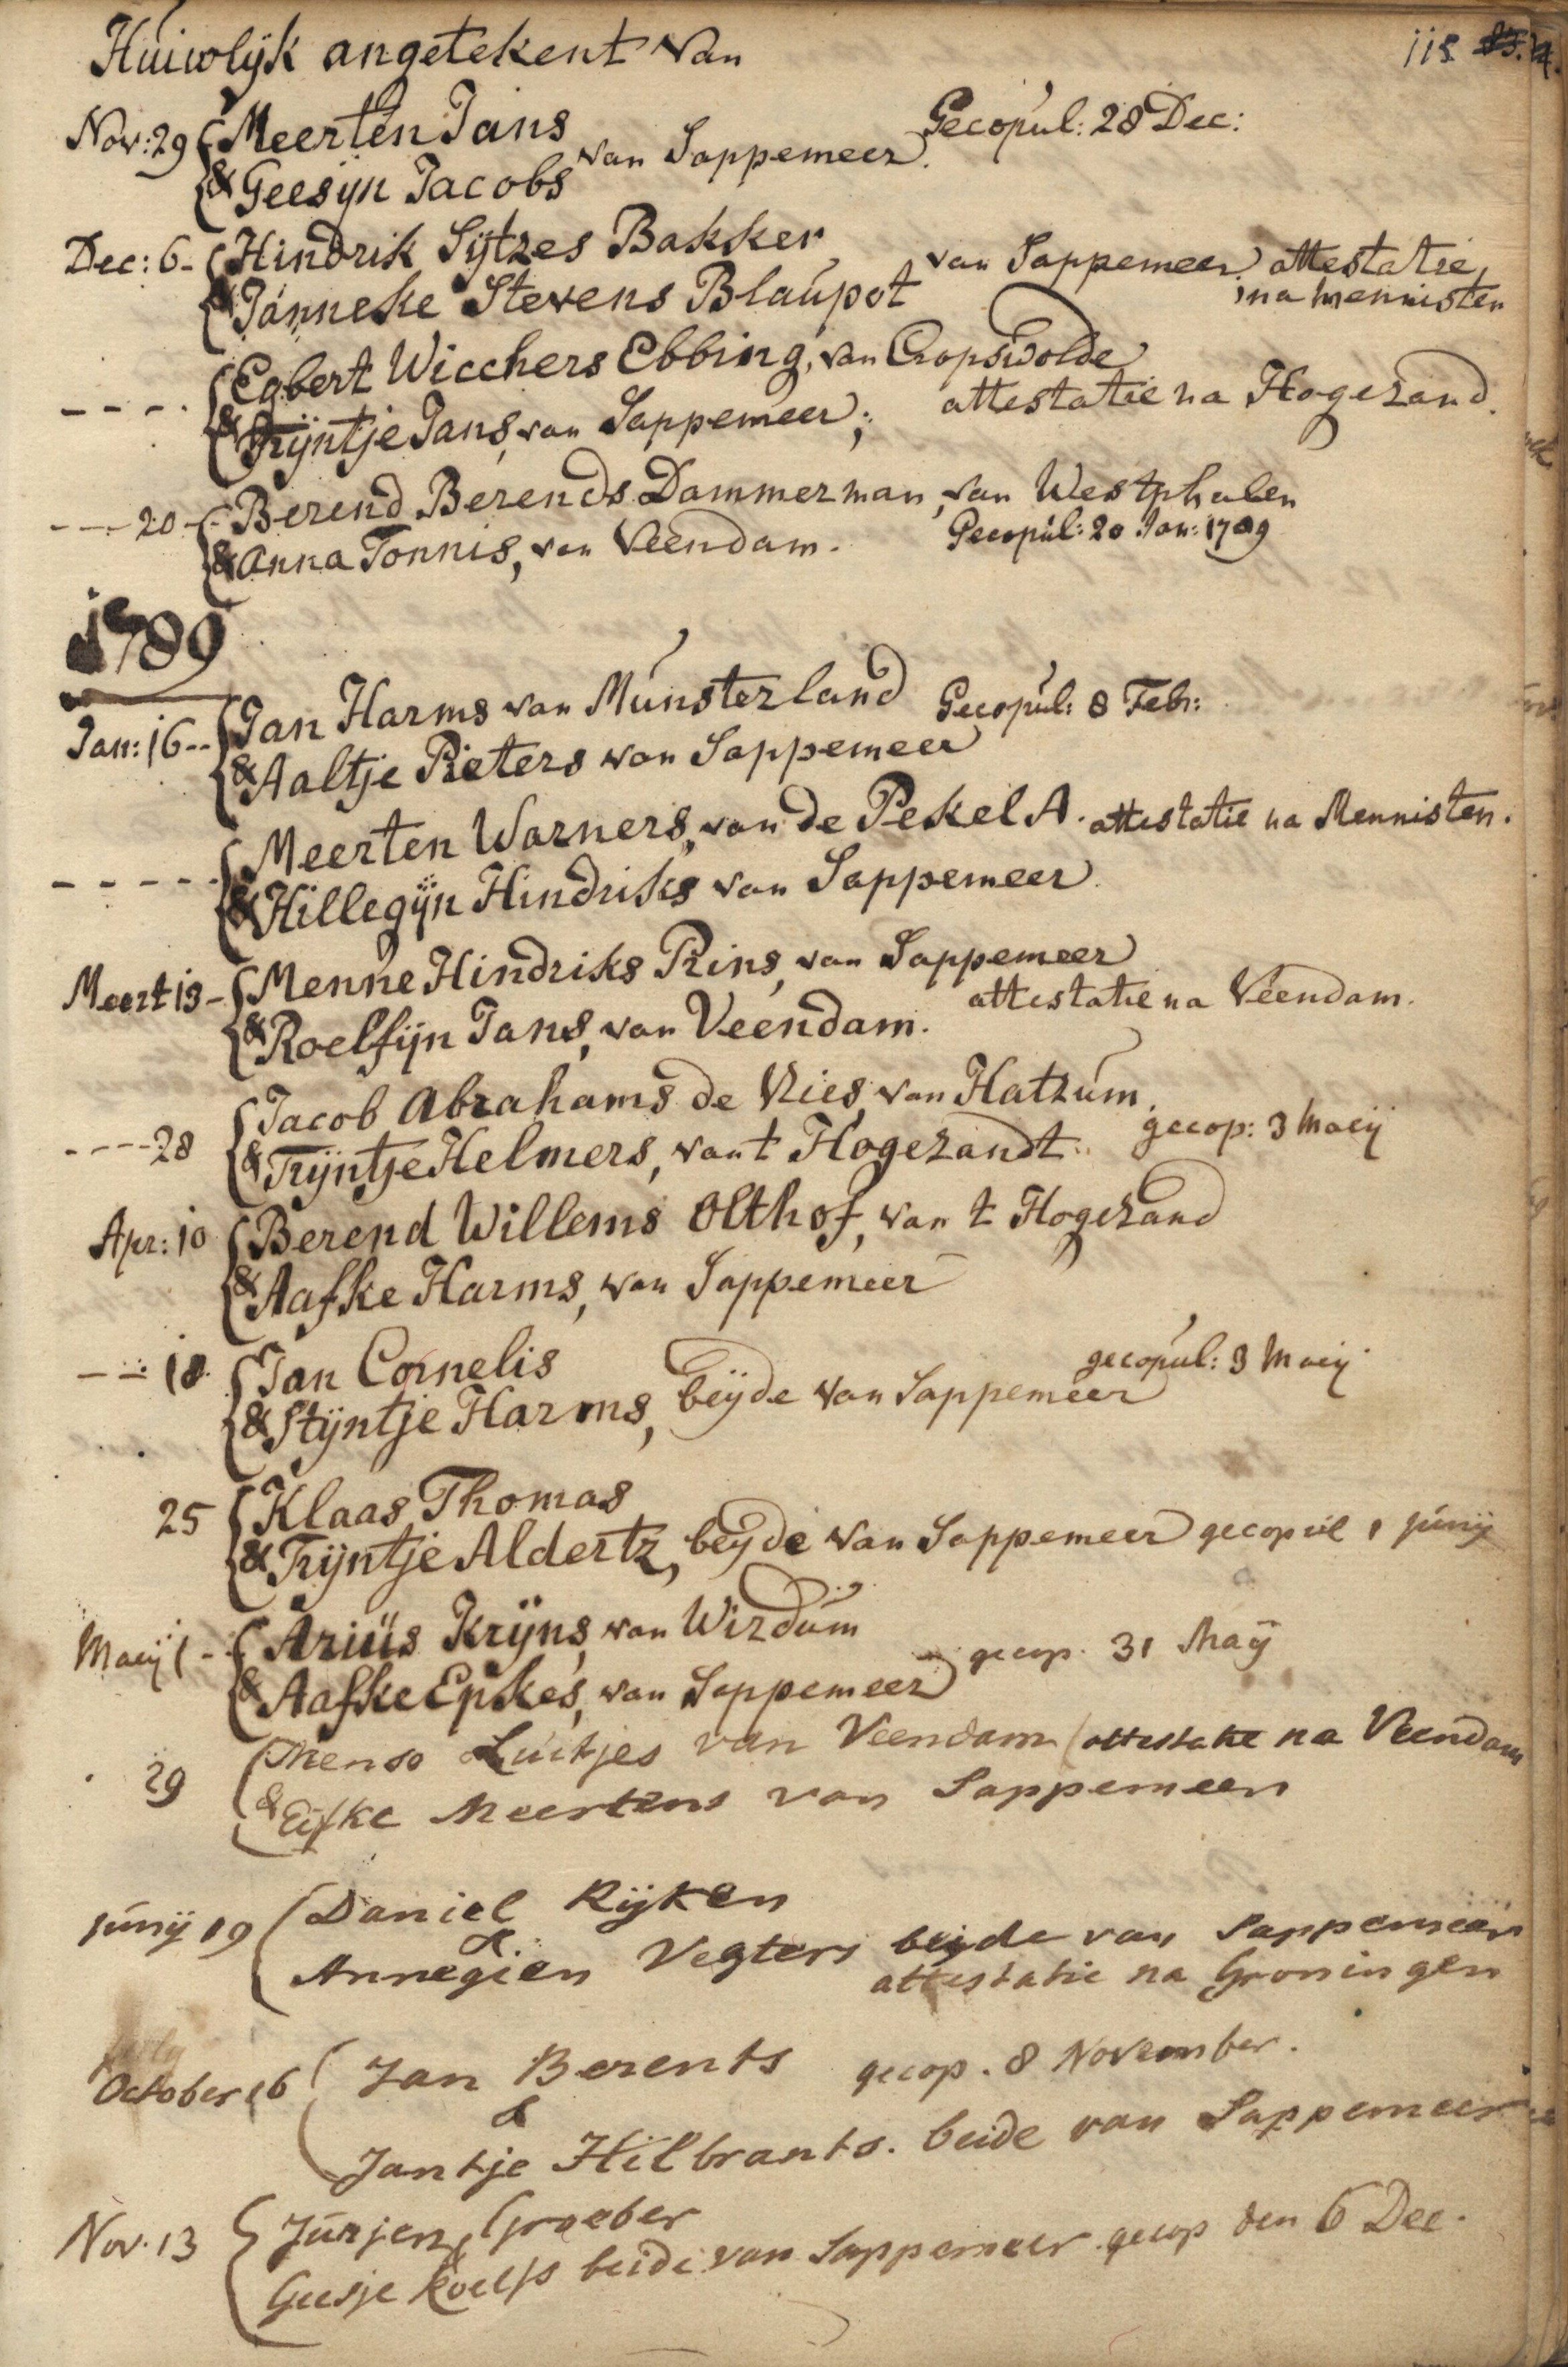 Huiwlÿk angetekent van
115
Nov: 29 { Meerten Jans
& Geesÿn Jacobs van Sappemeer. Gecopul: 28 Dec:
Dec: 6 - { Hindrik Sÿtzes Bakker
& Janneke Stevens Blaupot van Sappemeer attestatie
na mennisten
- - - - { Egbert Wicchers Ebbing, van Cropswolde
& Trÿntje Jans, van Sappemeer; attestatie na Hogezand.
- - - 20 - { Berend Berends Dammerman, van Westphalen
& Anna Tonnis, van Veendam. Gecopul: 20 Jan: 1789
1789
Jan: 16 - - { Jan Harms van Munsterland Gecopul: 8 Feb:
& Aaltje Pieters van Sappemeer
- - - - - { Meerten Warners, van de Pekel A. attestatie na Mennisten.
& Hillegÿn Hindriks van Sappemeer
Meert 13 - { Menne Hindriks Prins, van Sappemeer
& Roelfÿn Jans, van Veendam. attestatie na Veendam.
- - - - 28 { Jacob Abrahams de Vries van Hatzum.
& Trÿntje Helmers, van t Hogezandt. gecop: 3 Maeÿ
Apr: 10 { Berend Willems Olthof, van t Hogezand
& Aafke Harms, van Sappemeer
- - - 18 { Jan Cornelis
& Stÿntje Harms, beÿde van Sappemeer gecopul: 3 Maeÿ
25 { Klaas Thomas
& Trÿntje Aldertz, beÿde van Sappemeer gecopul 1 junÿ
Maeÿ 1 - { Arius Krÿns, van Wirdum
& Aafke Epkes, van Sappemeer gecop. 31 Maÿ
29 { Menso Luitjes van Veendam (attestatie na Veendam
& Eifke Meertens van Sappemeer
junÿ 19 { Daniel Rÿken
&
Annegien Vegters beÿde van Sappemeer
attestatie na Groningen
October 16 { Jan Berents gecop. 8 November.
&
Jantje Hilbrants. beide van Sappemeer
Nov. 13 { Jurjen Graeber
& Geesje Roelfs beide van Sappemeer gecop den 6 Dec.